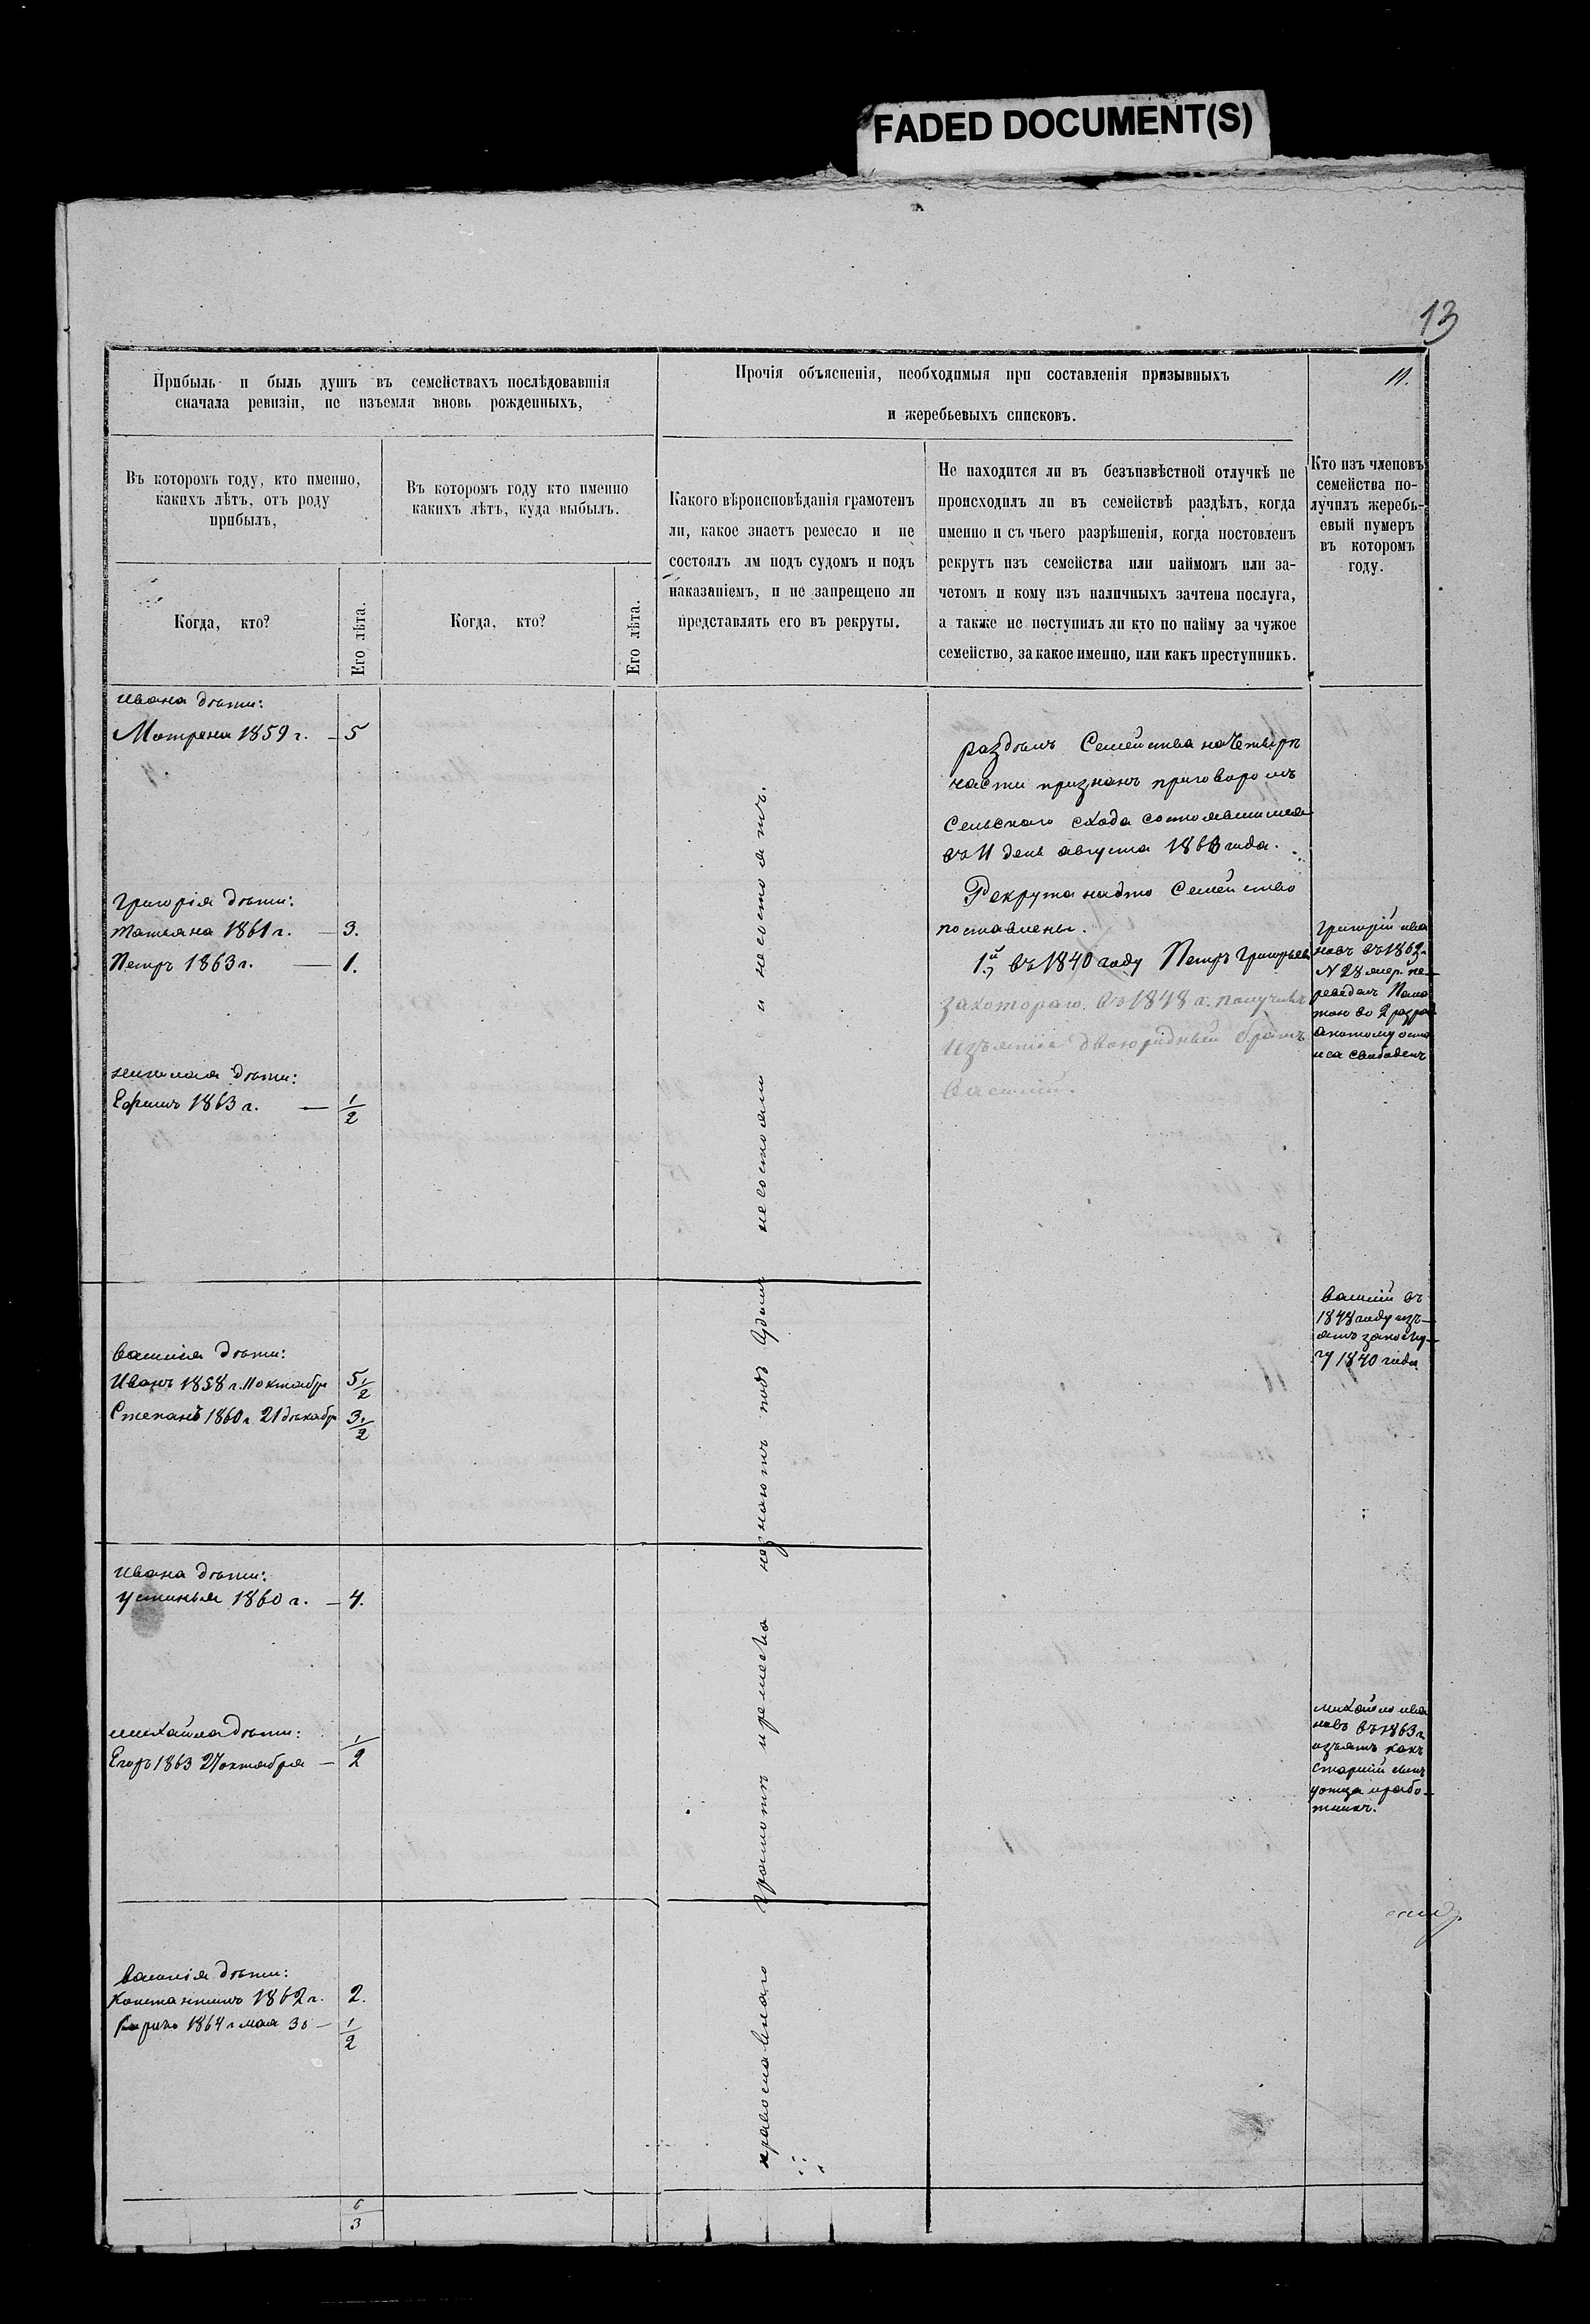 FADED DOCUMENT(S)
13
Прибыль и быль душъ въ семействахъ послѣдовавшія
сначала ревизіи, не изъемля вновь рожденныхъ,
Прочія объясненія, необходимыя при составленія призывныхъ
и жеребьевыхъ списковъ.
11.
Въ которомъ году, кто именно,
какихъ лѣтъ, отъ роду
прибылъ,
Въ которомъ году кто именно
какихъ лѣтъ, куда выбылъ.
Какого вѣроисповѣданія грамотенъ
ли, какое знаетъ ремесло и не
состоялъ лм подъ судомъ и подъ
наказаніемъ, и не запрещено ли
представлять его въ рекруты.
Не находится ли въ безъизвѣстной отлучкѣ не
происходилъ ли въ семействѣ раздѣлъ, когда
именно и съ чьего разрѣшенія, когда постовленъ
рекрутъ изъ семейства или наймомъ или за-
четомъ и кому изъ наличныхъ зачтена послуга,
а также не поступилъ ли кто по найму за чужое
семейство, за какое именно, или какъ преступникъ.
Кто изъ членовъ
семейства по-
лучилъ жеребь-
евый нумеръ
въ которомъ
году.
Когда, кто?
Его лѣта.
Когда, кто?
Его лѣта.
Ивана дѣти:
Матрена 1859 г. – 5
Григорія дѣти:
Татьяна 1861 г. – 3.
Петръ 1863 г. — 1.
дѣти:
Ефимъ 1863 г. — 1/2
Василія дѣти:
Иванъ 1858 г. 11 октября 5 1/2
Степанъ 1860 г. 21 декабр 3 1/2
Ивана дѣти:
Устинья 1860 г. – 4.
Михайла дѣти:
Егоръ 1863 27 октября – 1/2
Василія дѣти:
Константинъ 1862 г. 2.
1864 г мая 30 – 1/2
6/3
православнаго грамотъ и ремесла незнаютъ подъ Судомъ несостояли и несостоятъ.
раздѣлъ Семейства на Четыре
части признанъ приговоромъ
Сельскаго схода состоявшимся
въ 11 день августа 1863 года.
Рекрута на это Семейство
поставлены.
1й въ 1840 году Петръ Григорьевъ
за котораго въ 1848 г. получилъ
изъятіе двоюродный братъ
Василій.
Григорій Ива
новъ въ 1862 г.
N 28 жер. пе-
реведенъ
во 2 разряд
а потому оста
лся свободенъ
Василій въ
1848 году изъ-
ятъ за послу-
гу 1840 года
Михайло Ива
новъ въ 1863 г.
изъятъ какъ
старшій сынъ
у отца и рабо-
тникъ.